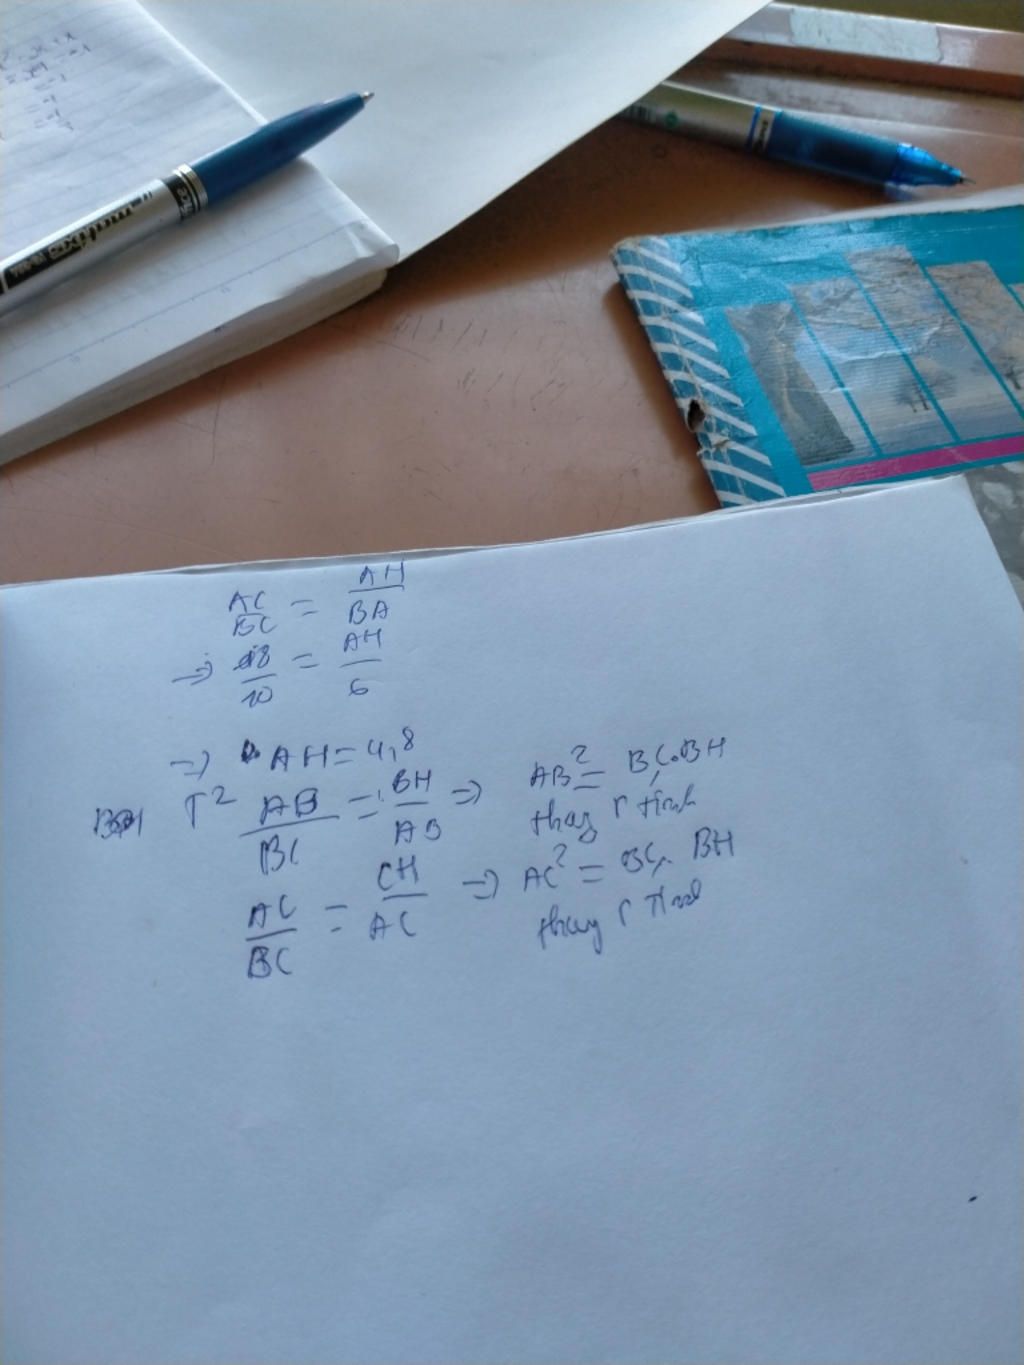 AC/BC = AH/BA
=> 8/10 = AH/6
=> AH = 4,8
T² AB/BC = BH/AB => AB² = BC.BH
thay r tính
AC/BC = CH/AC => AC² = BC. BH
thay r tính